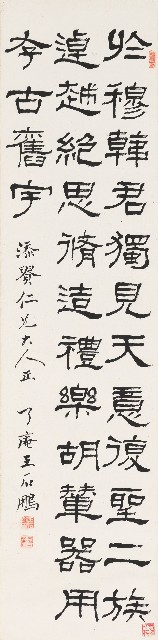 於穆韓君獨見天意復聖二族
逴越絕思脩造禮樂胡輦器用
存古舊宇
添賢仁兄大人正
了庵王石鵬